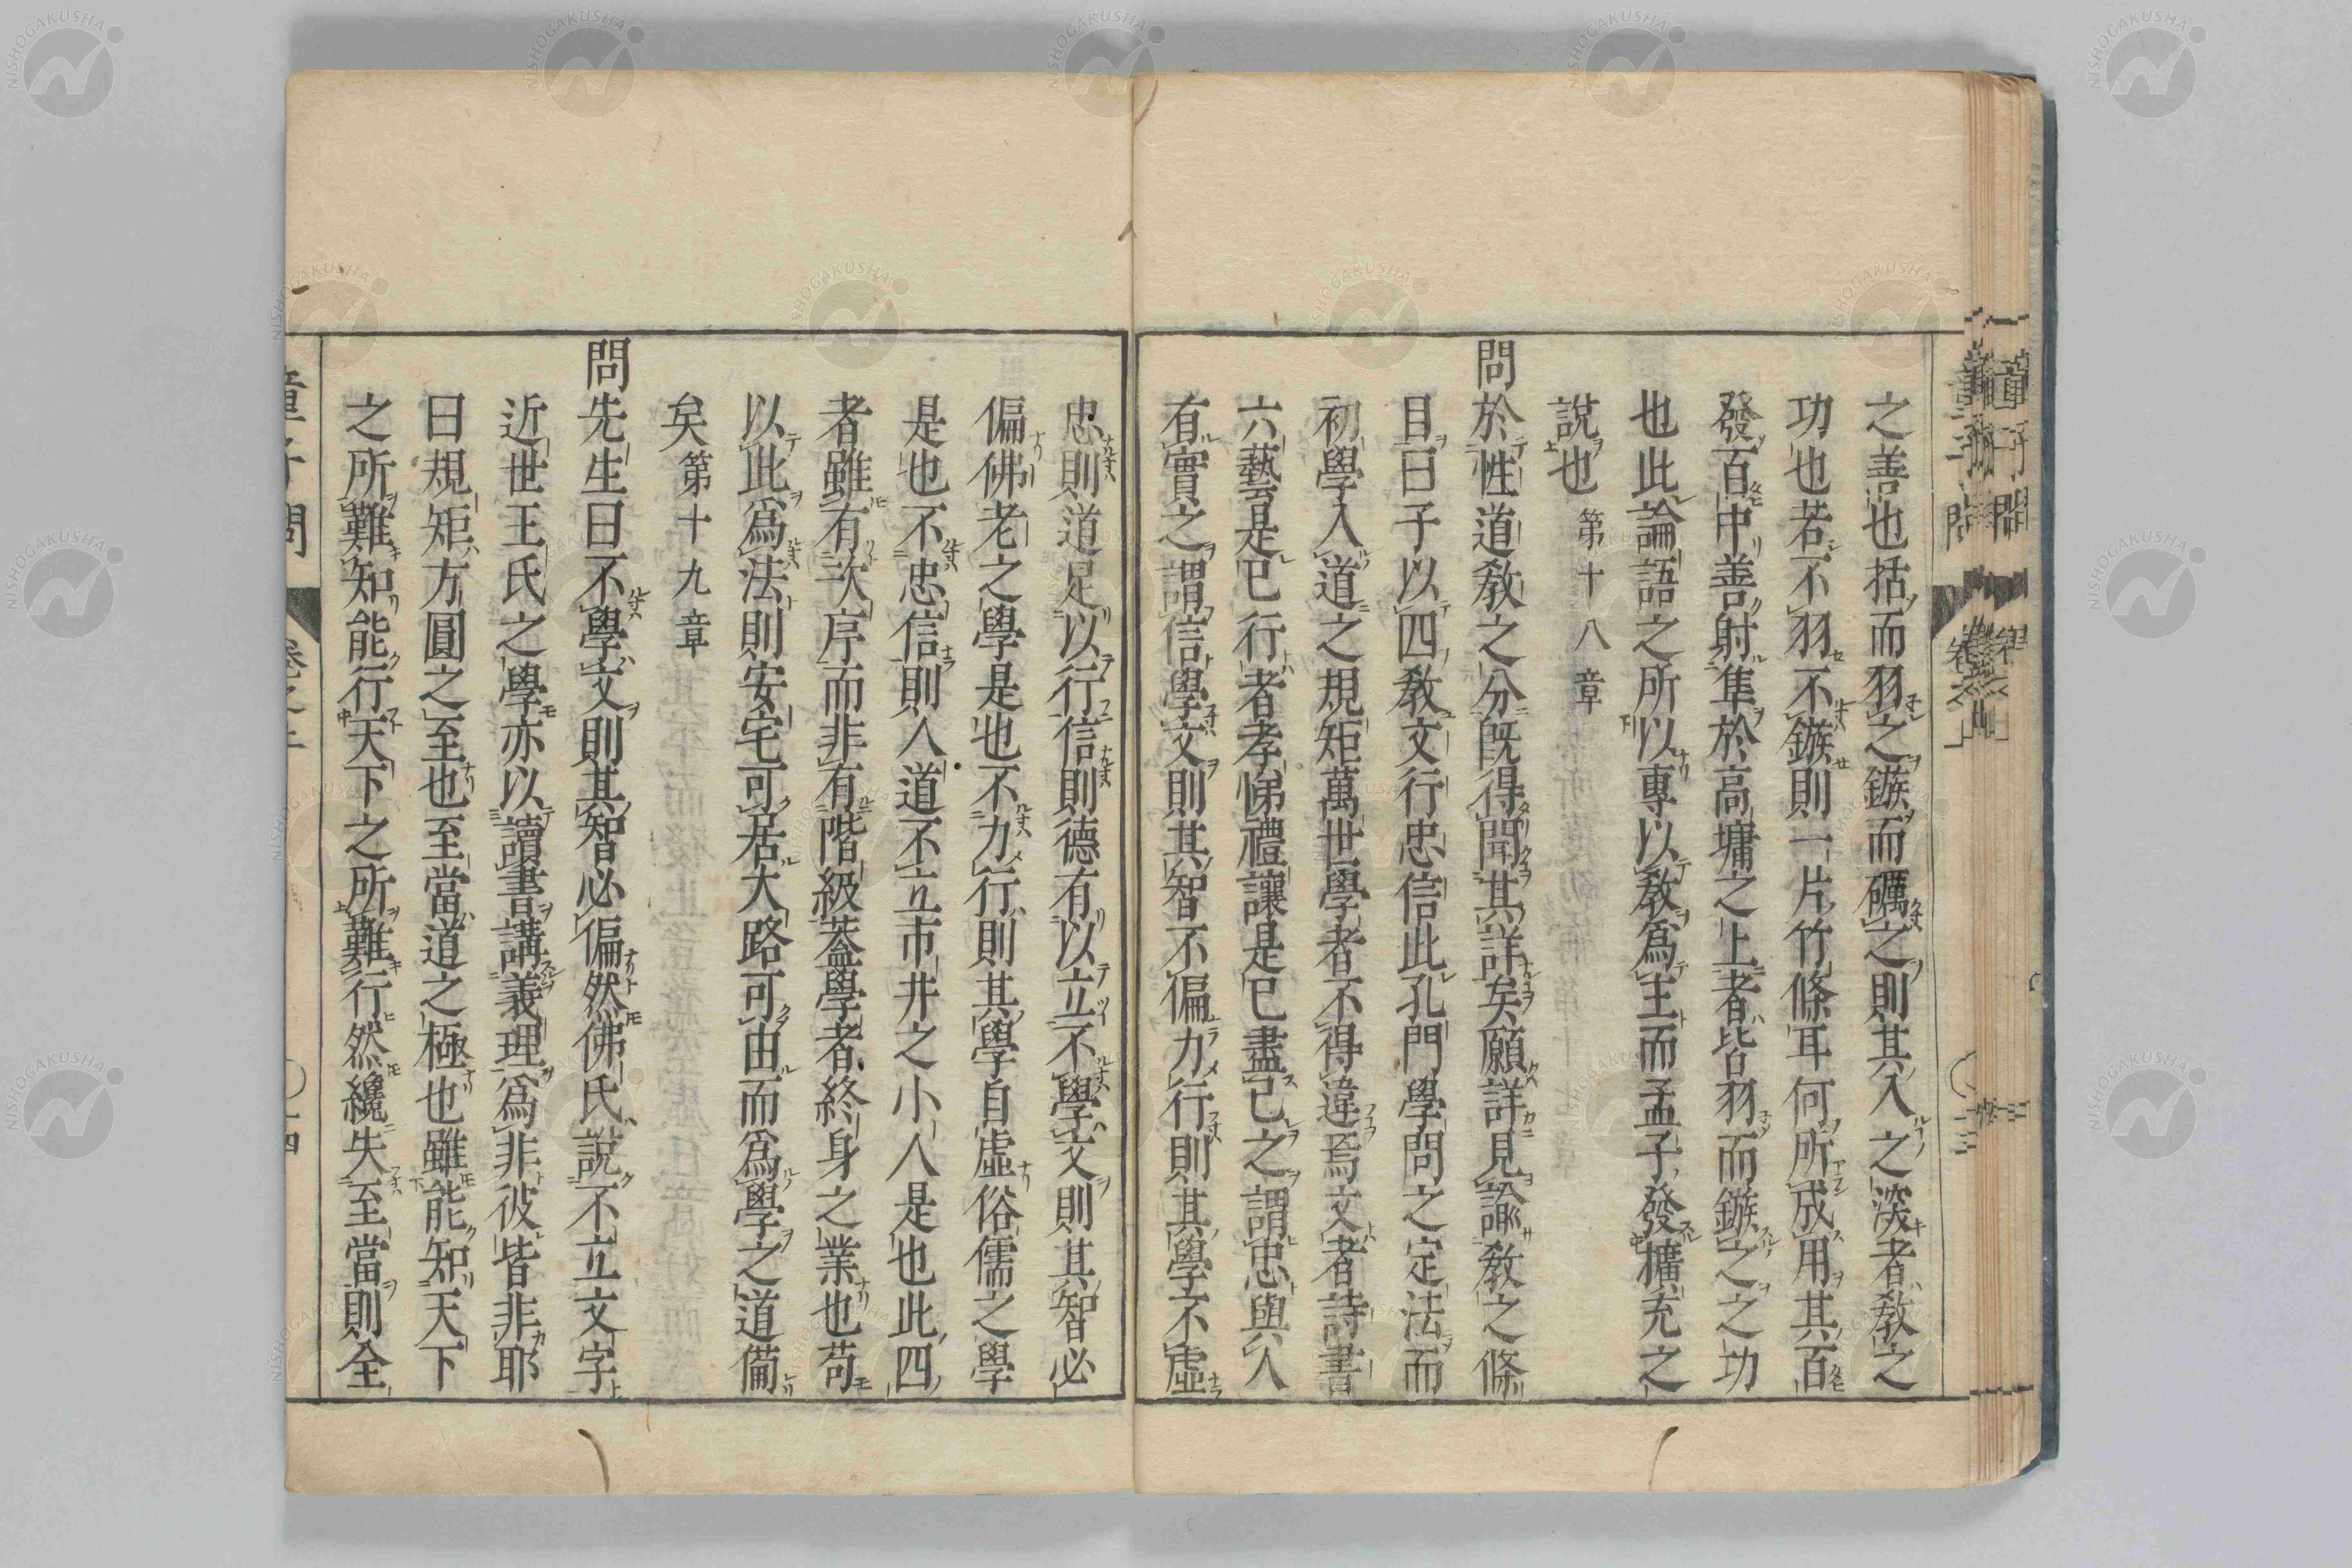 之善也括而羽之鏃而礪之則其入之深者教之
功也若不羽不鏃則一片竹條耳何所成用其百
發百中善射隼於高墉之上者皆羽而鏃之之功
也此論語之所以專以教爲主而孟子發擴充之
說也 第十八章
問於性道教之分既得聞其詳矣願詳見諭教之條
目曰子以四教文行忠信此孔門學問之定法而
初學入道之規矩萬世學者不得違焉文者詩書
六藝是已行者孝悌禮讓是已盡己之謂忠與人
有實之謂信學文則其智不偏力行則其學不虛
忠則道足以行信則德有以立不學文則其智必
偏佛老之學是也不力行則其學自虛俗儒之學
是也不忠信則入道不立市井之小人是也此四
者雖有次序而非有階級蓋學者終身之業也苟
以此爲法則安宅可居大路可由而爲學之道備
矣 第十九章
問先生曰不學文則其智必偏然佛氏說不立文字
近世王氏之學亦以讀書講義理爲非彼皆非耶
曰規矩方圓之至也至當道之極也雖能知天下
之所難知能行天下之所難行然纔失至當則全
童子問
NISHOGAKUSHA